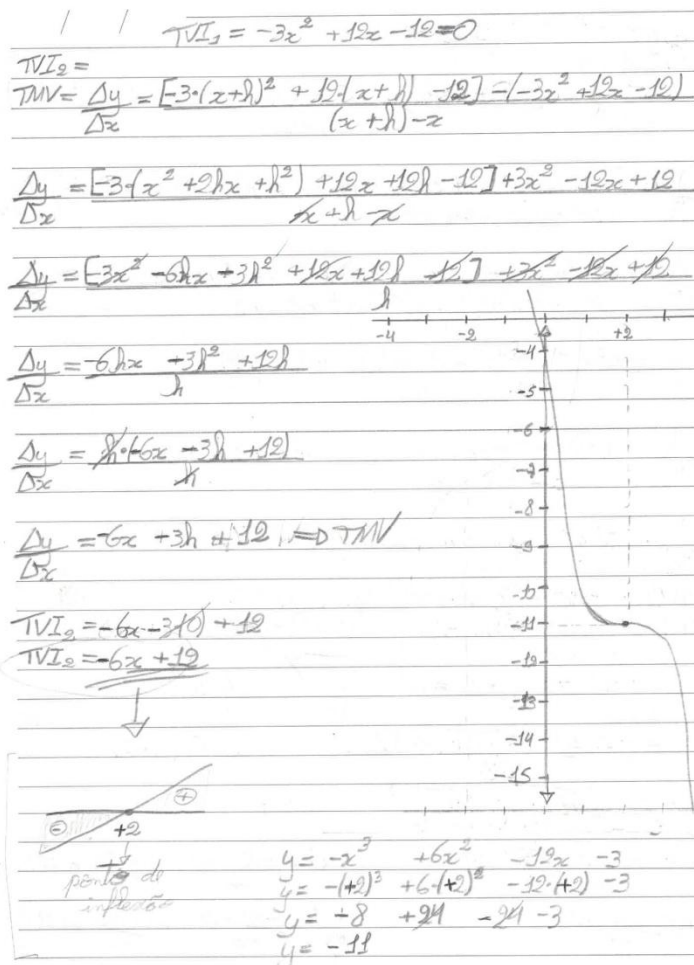 / /
TVI₁ = -3x² + 12x - 12 = 0
TVI₂ =
TMV = Δy/Δx = [-3·(x+h)² + 12·(x+h) - 12] - (-3x² + 12x - 12) / (x+h) - x
Δy/Δx = [-3·(x² + 2hx + h²) + 12x + 12h - 12] + 3x² - 12x + 12 / x + h - x
Δy/Δx = [-3x² - 6hx - 3h² + 12x + 12h - 12] + 3x² - 12x + 12 / h
-4 -2 0 +2
Δy/Δx = -6hx - 3h² + 12h / h
Δy/Δx = h·(-6x - 3h + 12) / h
Δy/Δx = -6x - 3h + 12 => TMV
TVI₂ = -6x - 3(0) + 12
TVI₂ = -6x + 12
-4
-5
-6
-7
-8
-9
-10
-11
-12
-13
-14
-15
⊖ +2 ⊕
ponto de
inflexão
y = -x³ + 6x² - 12x - 3
y = -(+2)³ + 6·(+2)² - 12·(+2) - 3
y = -8 + 24 - 24 - 3
y = -11